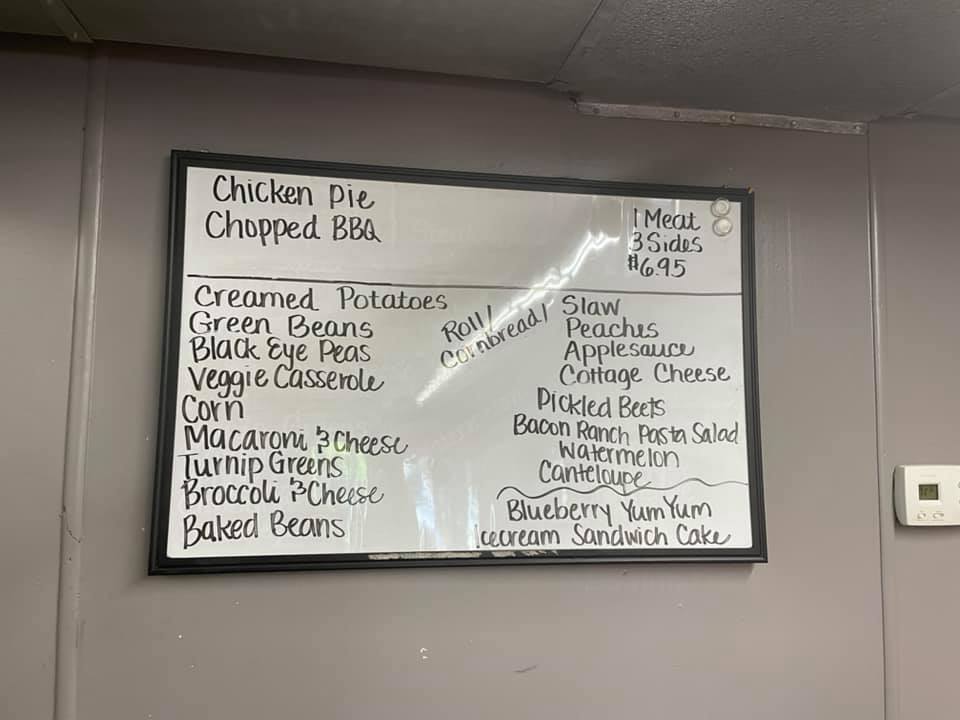 Chicken Pie
Chopped BBQ
1 Meat
3 Sides
$6.95
Creamed Potatoes
Green Beans
Black Eye Peas
Veggie Casserole
Corn
Macaroni & Cheese
Turnip Greens
Broccoli & Cheese
Baked Beans
Roll/
Cornbread/
Slaw
Peaches
Applesauce
Cottage Cheese
Pickled Beets
Bacon Ranch Pasta Salad
Watermelon
Canteloupe
Blueberry Yum Yum
Icecream Sandwich Cake